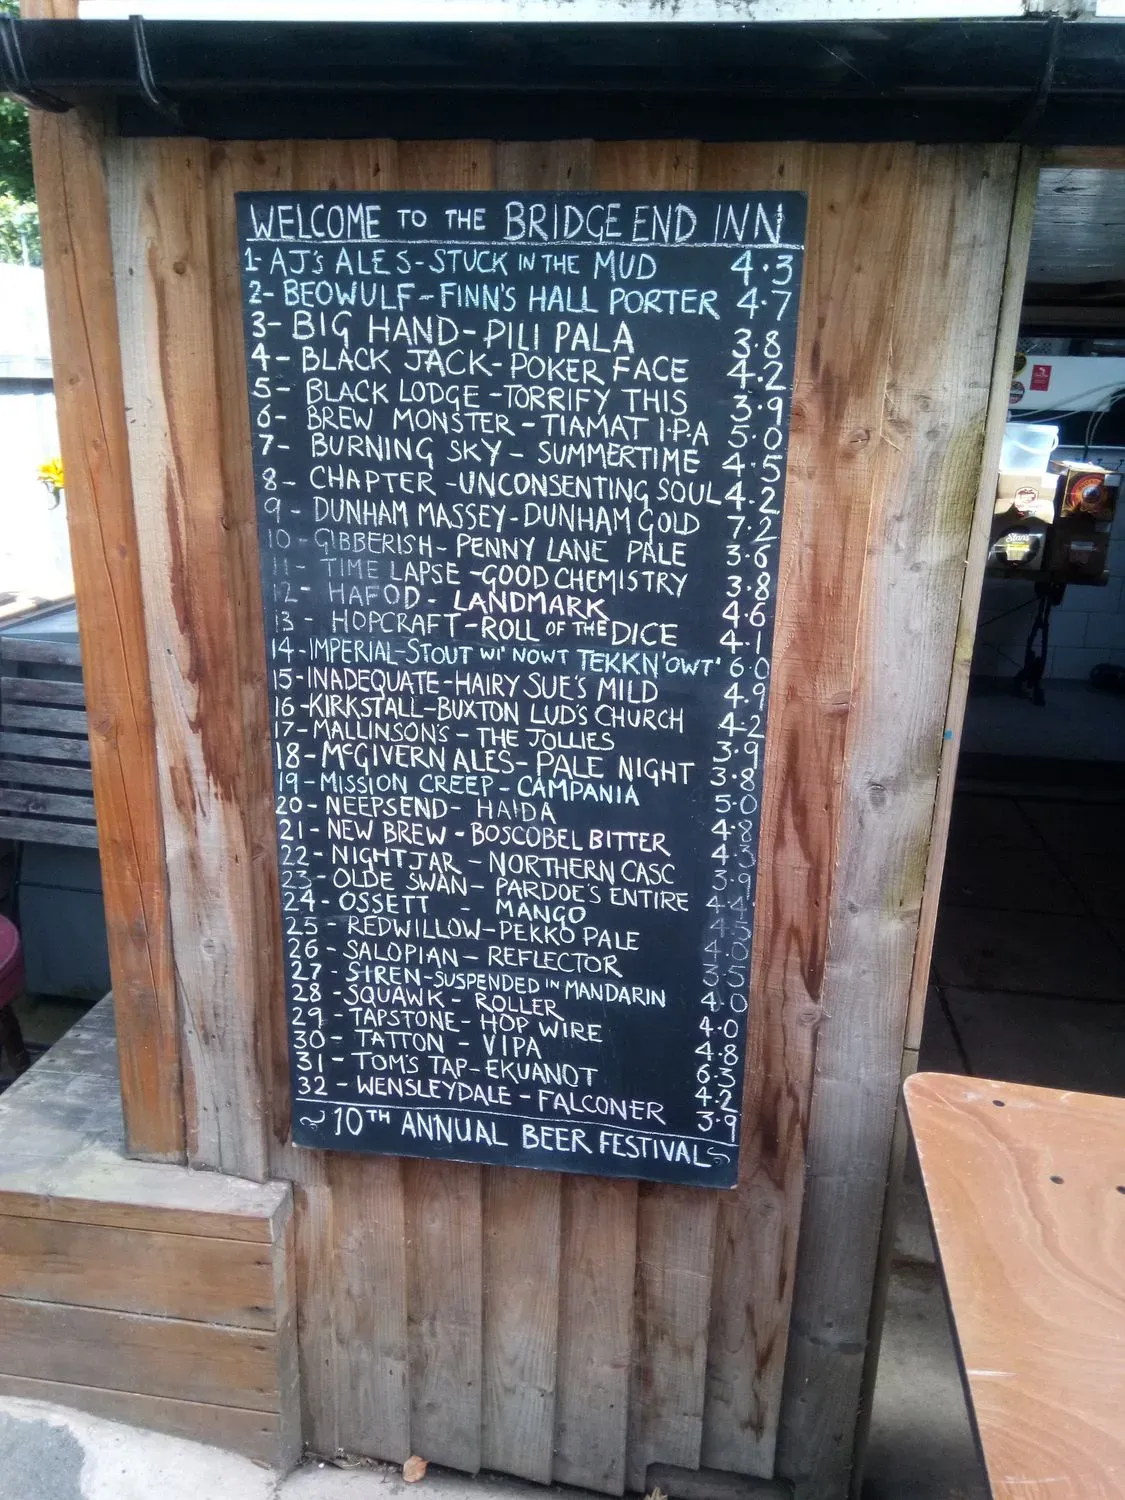 WELCOME TO THE BRIDGE END INN
1- AJ's ALES-STUCK IN THE MUD 4.3
2- BEOWULF-FINN'S HALL PORTER 4.7
3- BIG HAND-PILI PALA 3.8
4- BLACK JACK-POKER FACE 4.2
5- BLACK LODGE-TORRIFY THIS 3.9
6- BREW MONSTER-TIAMAT I.P.A 5.0
7- BURNING SKY- SUMMERTIME 4.5
8- CHAPTER-UNCONSENTING SOUL 4.2
9- DUNHAM MASSEY-DUNHAM GOLD 7.2
10- GIBBERISH-PENNY LANE PALE 3.6
11- TIME LAPSE-GOOD CHEMISTRY 3.8
12- HAFOD- LANDMARK 4.6
13- HOPCRAFT-ROLL OF THE DICE 4.1
14-IMPERIAL-STOUT WI' NOWT TEKKN'OWT' 6.0
15-INADEQUATE-HAIRY SUE'S MILD 4.9
16-KIRKSTALL-BUXTON LUD'S CHURCH 4.2
17-MALLINSON'S-THE JOLLIES 3.9
18-McGIVERN ALES-PALE NIGHT 3.8
19-MISSION CREEP-CAMPANIA 5.0
20-NEEPSEND-HAIDA 4.8
21-NEW BREW-BOSCOBEL BITTER 4.3
22-NIGHTJAR-NORTHERN CASC 3.9
23-OLDE SWAN-PARDOE'S ENTIRE 4.4
24-OSSETT - MANGO 4.5
25-REDWILLOW-PEKKO PALE 4.0
26-SALOPIAN-REFLECTOR 3.5
27-SIREN-SUSPENDED IN MANDARIN 4.0
28-SQUAWK-ROLLER 4.0
29-TAPSTONE-HOP WIRE 4.8
30-TATTON-VIPA 6.3
31-TOM'S TAP-EKUANOT 4.2
32-WENSLEYDALE-FALCONER 3.9
~10TH ANNUAL BEER FESTIVAL~